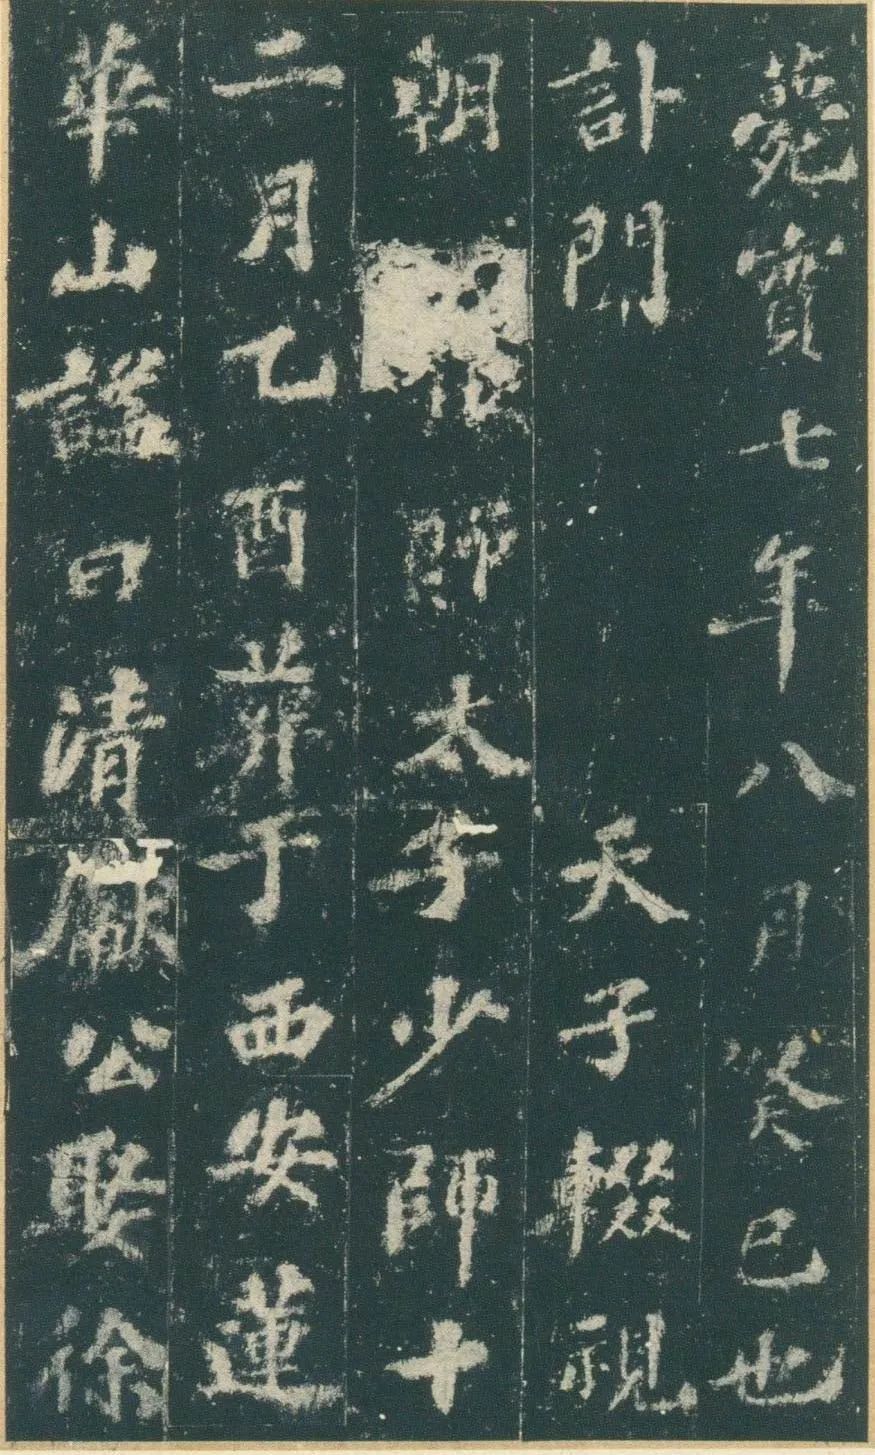 薨實七年八月癸巳也
訃聞天子輟視
朝太子少師十
二月乙酉葬于西安蓮
華山謚曰清獻公娶徐